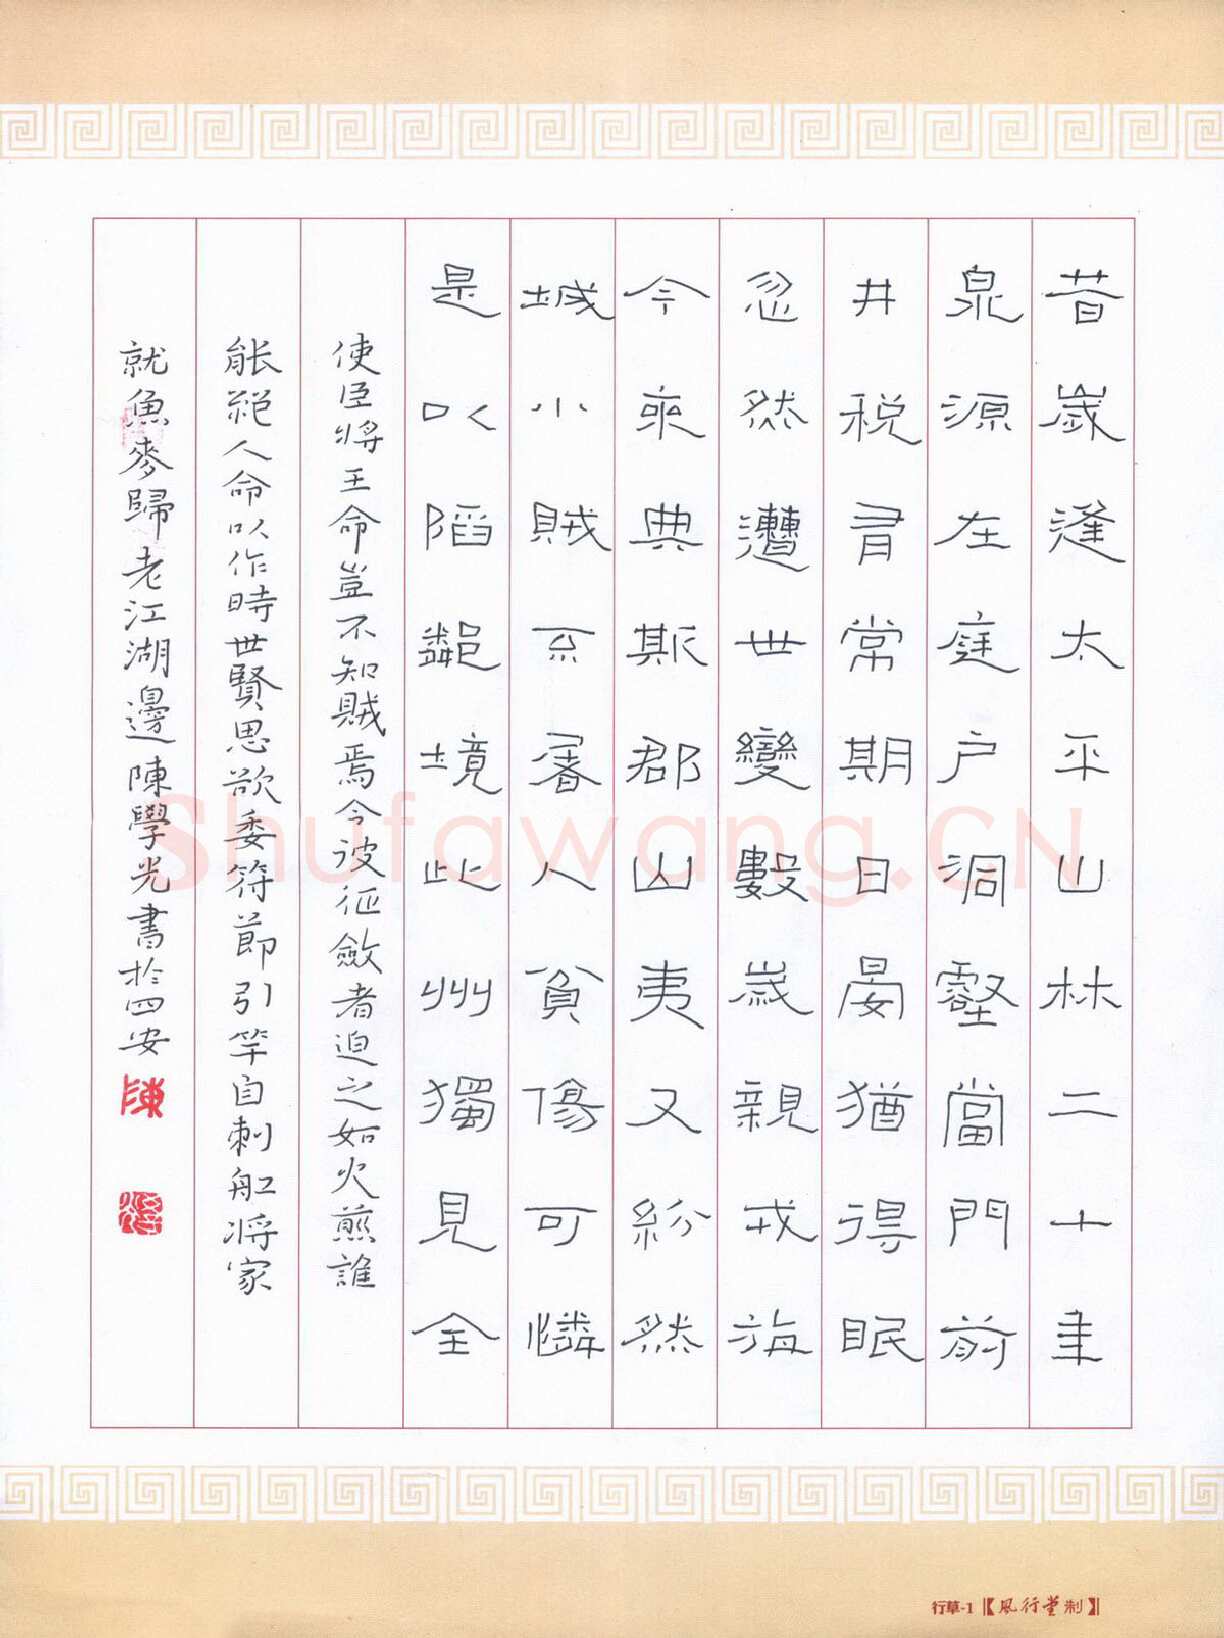 昔歲逢太平山林二十年
泉源在庭户洞壑當門前
井税有常期日晏猶得眠
忽然遭世變數歲親戎旃
今來典斯郡山夷又紛然
城小賊不屠人貧傷可憐
是以陷鄰境此州獨見全
使臣將王命豈不知賊焉今彼征斂者迫之如火煎誰
能絕人命以作時世賢思欲委符節引竿自刺船將家
就魚麥歸老江湖邊陳學光書於四安
陳
Shufawang.CN
行草-1【風行堂制】